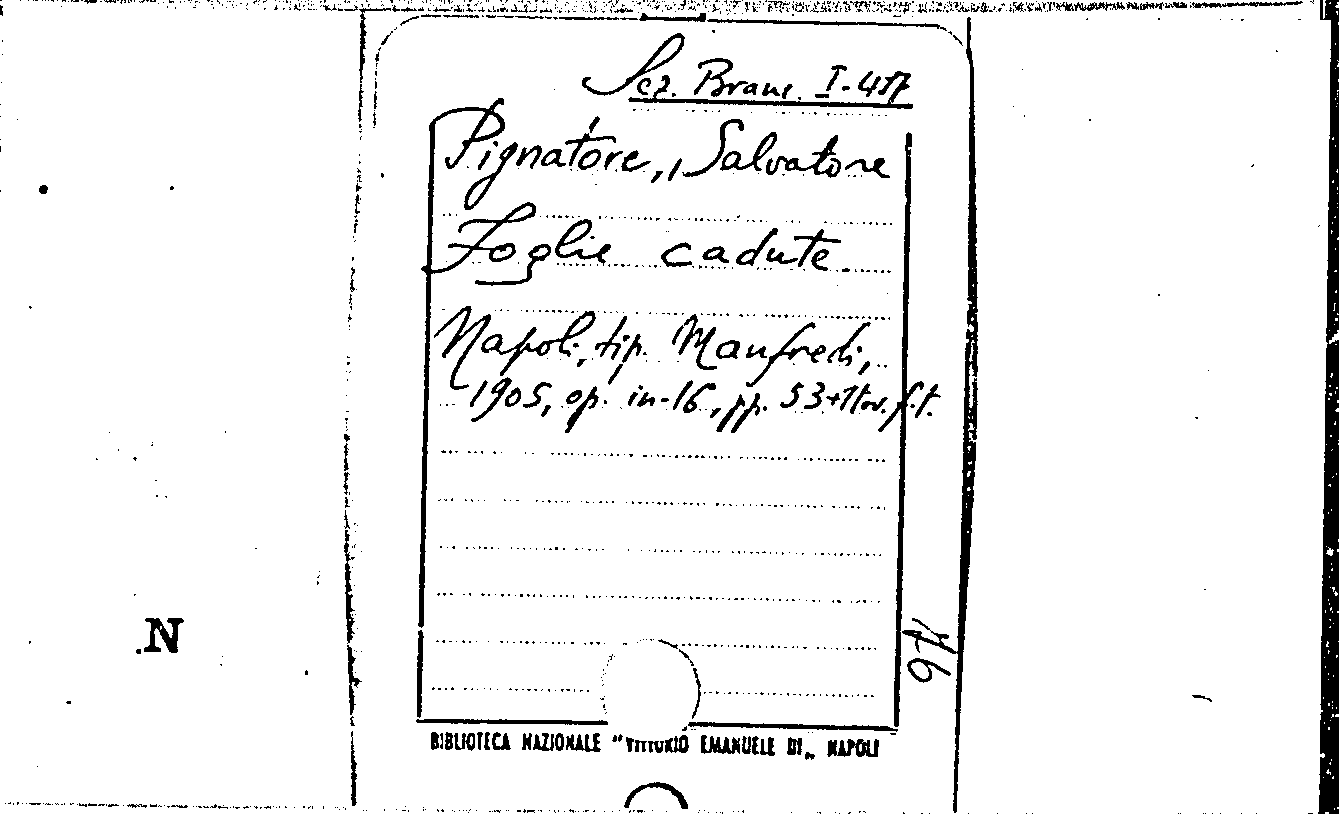 Sez. Branc. I-417
Pignatore, Salvatore
Foglie cadute.
Napoli, tip. Manfredi,
1905, op. in-16, pp. 53+1tav. f.t.
N
46
BIBLIOTECA NAZIONALE "VITTORIO EMANUELE III„ NAPOLI